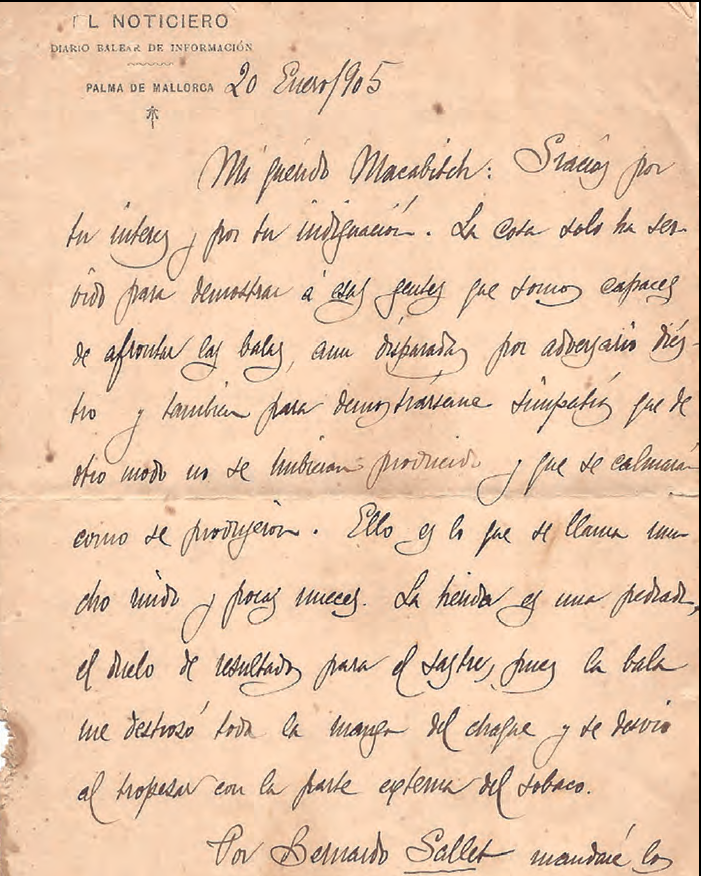 EL NOTICIERO
DIARIO BALEAR DE INFORMACIÓN
PALMA DE MALLORCA 20 Enero/905
Mi querido Macabitch: Gracias por
tu interes y por tu indignación. La cosa solo ha ser-
vido para demostrar á esas gentes que somos capaces
de afrontar las balas, aun disparadas por adversario diés-
tro y tambien para demostrárseme simpatías que de
otro modo no se hubieran producido y que se calmarán
como se produjeron. Ello es lo que se llama mu-
cho ruido y pocas nueces. La herida es una pedrada,
el duelo de resultados para el sastre, pues la bala
me destrozó toda la manga del chaque y se desvió
al tropesar con la parte externa del sobaco.
Por Bernardo Sallet mandaré los